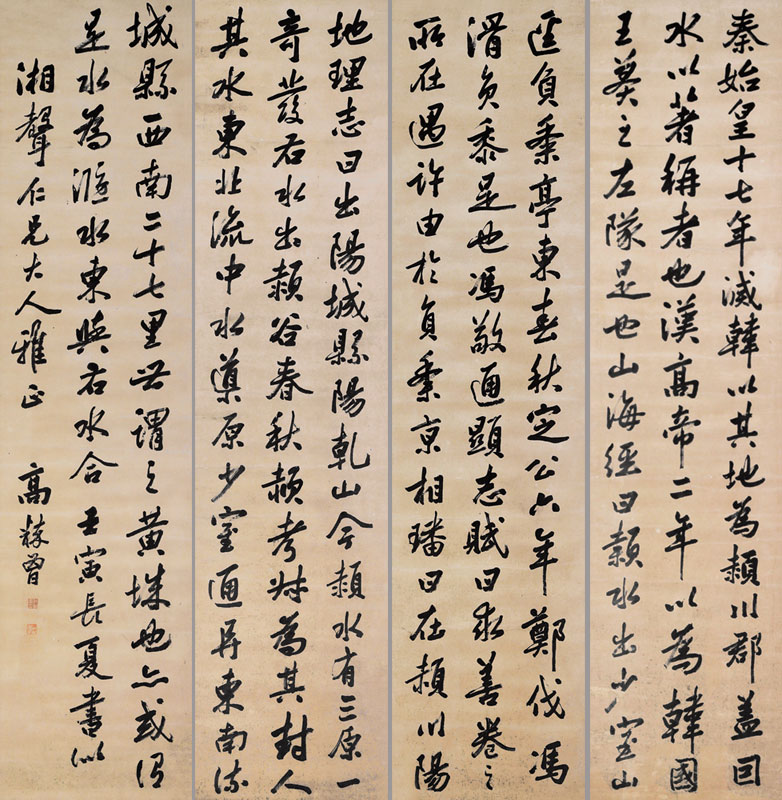 秦始皇十七年滅韓以其地為潁川郡蓋因
水以著稱者也漢高帝二年以為韓國
王莽之左隊是也山海經曰潁水出少室山
逕負黍亭東春秋定公六年鄭伐馮
滑負黍是也馮敬通顯志賦曰求善卷之
所在遇許由於負黍京相璠曰在潁川陽
地理志曰出陽城縣陽乾山今潁水有三原一
奇發右水出潁谷春秋潁考叔為其封人
其水東北流中水導原少室通阜東南流
城縣西南二十七里世謂之黃城也亦或謂
是水為㶏水東與右水合 壬寅長夏書似
湘聲仁兄大人雅正 高 曾